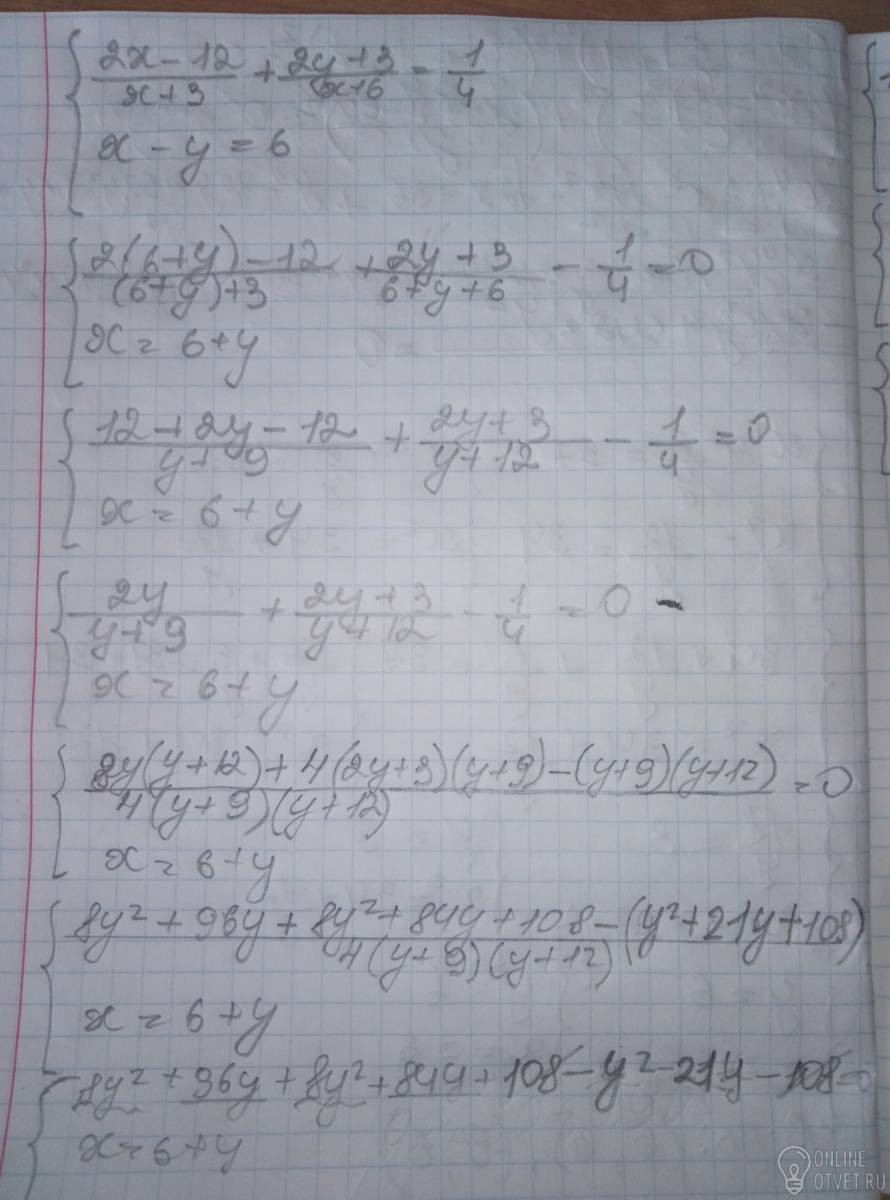 (2x - 12)/(x + 3) + (2y + 3)/(x + 6) = 1/4
x - y = 6
(2(6 + y) - 12)/((6 + y) + 3) + (2y + 3)/(6 + y + 6) - 1/4 = 0
x = 6 + y
(12 + 2y - 12)/(y + 9) + (2y + 3)/(y + 12) - 1/4 = 0
x = 6 + y
2y/(y + 9) + (2y + 3)/(y + 12) - 1/4 = 0 -
x = 6 + y
(8y(y + 12) + 4(2y + 3)(y + 9) - (y + 9)(y + 12))/(4(y + 9)(y + 12)) = 0
x = 6 + y
(8y² + 96y + 8y² + 84y + 108 - (y² + 21y + 108))/(4(y + 9)(y + 12))
x = 6 + y
8y² + 96y + 8y² + 84y + 108 - y² - 21y - 108 = 0
x = 6 + y
ONLINE
OTVET.RU